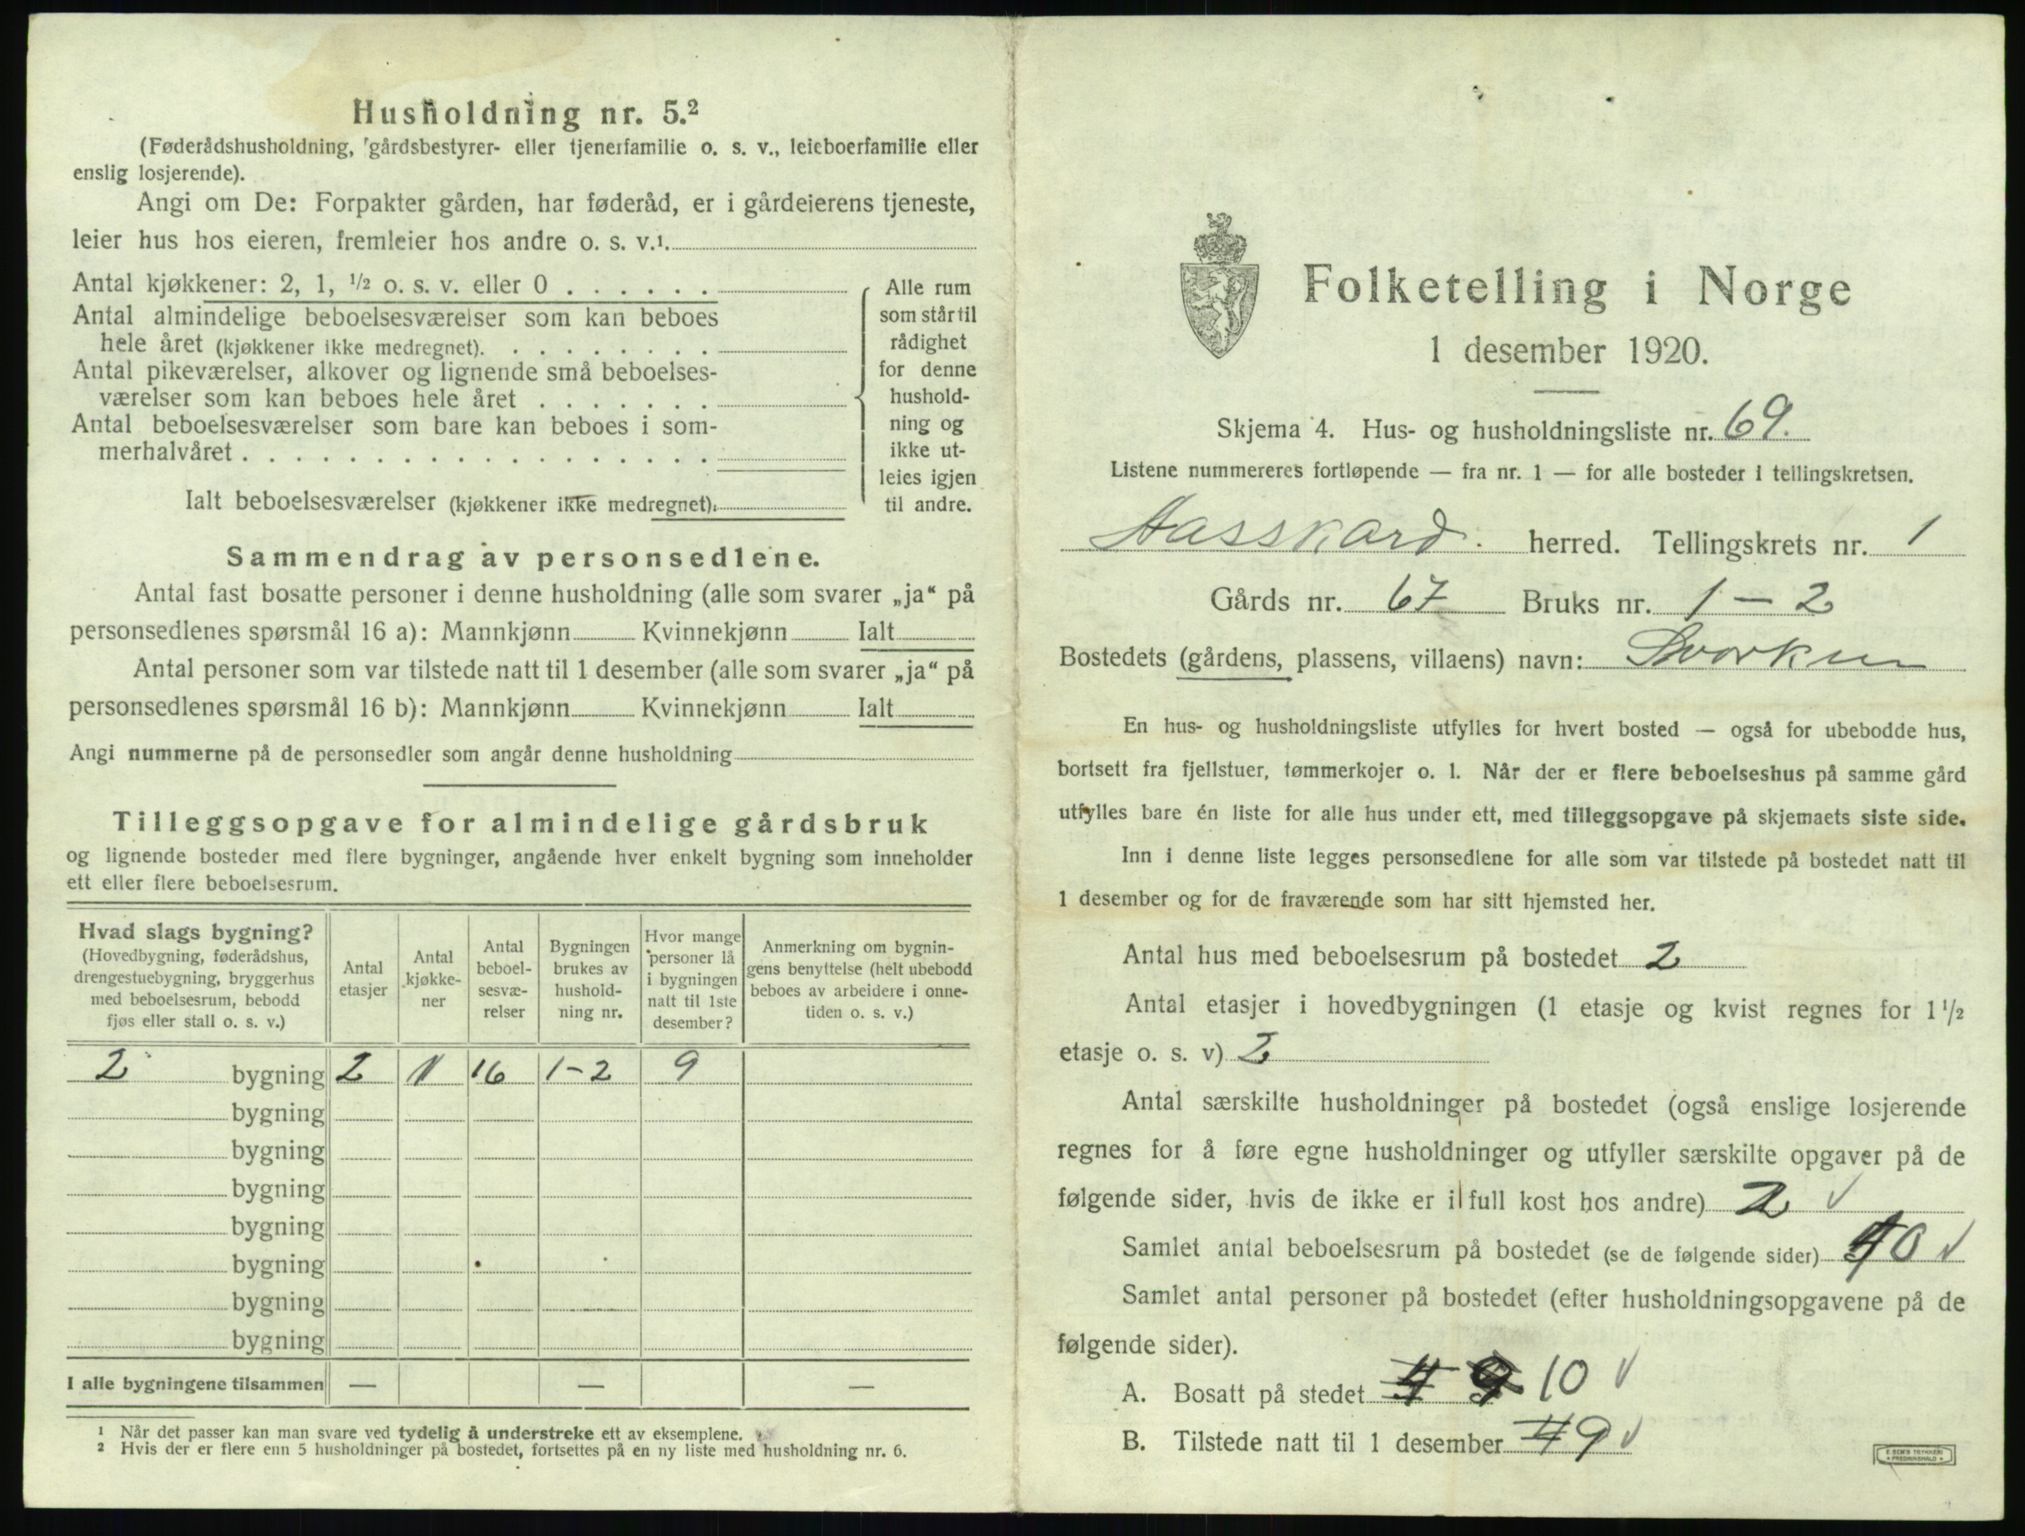 Husholdning nr. 5.²
(Føderådshusholdning, gårdsbestyrer- eller tjenerfamilie o. s. v., leieboerfamilie eller
enslig losjerende).
Angi om De: Forpakter gården, har føderåd, er i gårdeierens tjeneste,
leier hus hos eieren, fremleier hos andre o. s. v.¹
Antal kjøkkener: 2, 1, ½ o. s. v. eller 0
Antal almindelige beboelsesværelser som kan beboes
hele året (kjøkkener ikke medregnet).
Antal pikeværelser, alkover og lignende små beboelses-
værelser som kan beboes hele året
Antal beboelsesværelser som bare kan beboes i som-
merhalvåret
Ialt beboelsesværelser (kjøkkener ikke medregnet).
Alle rum
som står til
rådighet
for denne
hushold-
ning og
ikke ut-
leies igjen
til andre.
Sammendrag av personsedlene.
Antal fast bosatte personer i denne husholdning (alle som svarer „ja“ på
personsedlenes spørsmål 16 a): Mannkjønn Kvinnekjønn Ialt
Antal personer som var tilstede natt til 1 desember (alle som svarer „ja“ på
personsedlenes spørsmål 16 b): Mannkjønn Kvinnekjønn Ialt
Angi nummerne på de personsedler som angår denne husholdning
Tilleggsopgave for almindelige gårdsbruk
og lignende bosteder med flere bygninger, angående hver enkelt bygning som inneholder
ett eller flere beboelsesrum.
Hvad slags bygning?
(Hovedbygning, føderådshus,
drengestuebygning, bryggerhus
med beboelsesrum, bebodd
fjøs eller stall o. s. v.)
Antal
etasjer
Antal
kjøkke-
ner
Antal
beboel-
sesvæ-
relser
Bygningen
brukes av
hushold-
ning nr.
Hvor mange
personer lå
i bygningen
natt til 1ste
desember?
Anmerkning om bygnin-
gens benyttelse (helt ubebodd
beboes av arbeidere i onne-
tiden o. s. v.)
2 bygning 2 1 16 1-2 9
bygning
bygning
bygning
bygning
bygning
bygning
bygning
I alle bygningene tilsammen — — —
¹ Når det passer kan man svare ved tydelig å understreke ett av eksemplene.
² Hvis der er flere enn 5 husholdninger på bostedet, fortsettes på en ny liste med husholdning nr. 6.
Folketelling i Norge
1 desember 1920.
Skjema 4. Hus- og husholdningsliste nr. 69.
Listene nummereres fortløpende — fra nr. 1 — for alle bosteder i tellingskretsen.
Aasskard. herred. Tellingskrets nr. 1
Gårds nr. 67 Bruks nr. 1 - 2
Bostedets (gårdens, plassens, villaens) navn: Svorkun
En hus- og husholdningsliste utfylles for hvert bosted — også for ubebodde hus,
bortsett fra fjellstuer, tømmerkojer o. l. Når der er flere beboelseshus på samme gård
utfylles bare én liste for alle hus under ett, med tilleggsopgave på skjemaets siste side.
Inn i denne liste legges personsedlene for alle som var tilstede på bostedet natt til
1 desember og for de fraværende som har sitt hjemsted her.
Antal hus med beboelsesrum på bostedet 2
Antal etasjer i hovedbygningen (1 etasje og kvist regnes for 1½
etasje o. s. v) 2
Antal særskilte husholdninger på bostedet (også enslige losjerende
regnes for å føre egne husholdninger og utfyller særskilte opgaver på de
følgende sider, hvis de ikke er i full kost hos andre) 2 ✓
Samlet antal beboelsesrum på bostedet (se de følgende sider) 10 ✓
Samlet antal personer på bostedet (efter husholdningsopgavene på de
følgende sider).
A. Bosatt på stedet 4 9 10 ✓
B. Tilstede natt til 1 desember 4 9 ✓
E. SEM'S TRYKKERI
FREDRIKSHALD